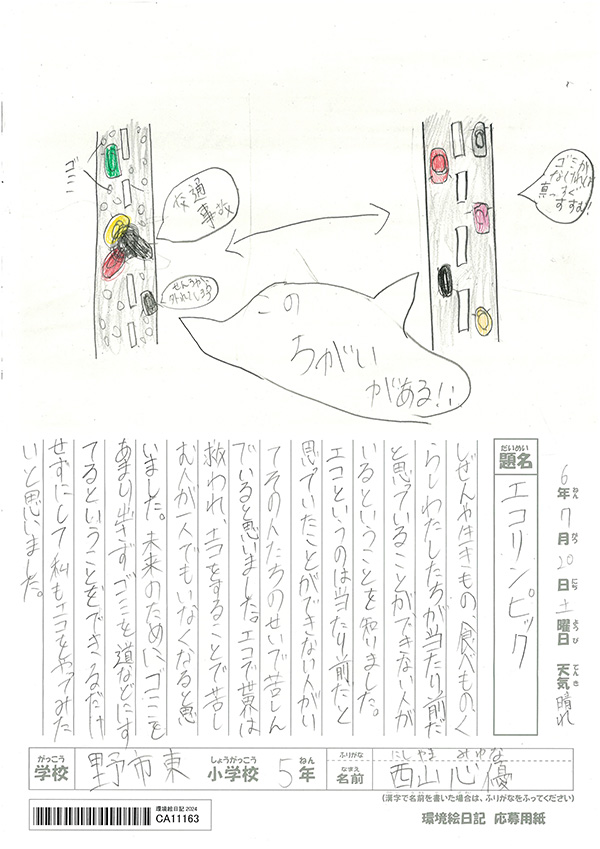 ゴミ
交通
事故
せんろから
外れてしまう
ゴミが
なければ
真っすぐ
すすむ!!
この
ちがい
がある!!
6年7月20日土曜日 天気 晴れ
ねん がつ にち ようび てんき
だいめい
題名
エコリンピック
しぜんや生きもの、食べもの、く
らし、わたしたちが当たり前だ
と思っていることができない人が
いるということを知りました。
エコというのは当たり前だと
思っていたことができない人がい
てその人たちのせいで苦しん
でいると思いました。エコで世界は
救われ、エコをすることで苦し
む人が一人でもいなくなると思
いました。未来のために、ゴミを
あまり出さず、ゴミを道などにす
てるということをできるだけ
せずにして私もエコをやってみた
いと思いました。
がっこう
学校
野市東
しょうがっこう
小学校
5
ねん
年
ふりがな
にしやま みゆな
なまえ
名前
西山心優
(漢字で名前を書いた場合は、ふりがなをふってください)
環境絵日記2024
CA11163
環境絵日記 応募用紙